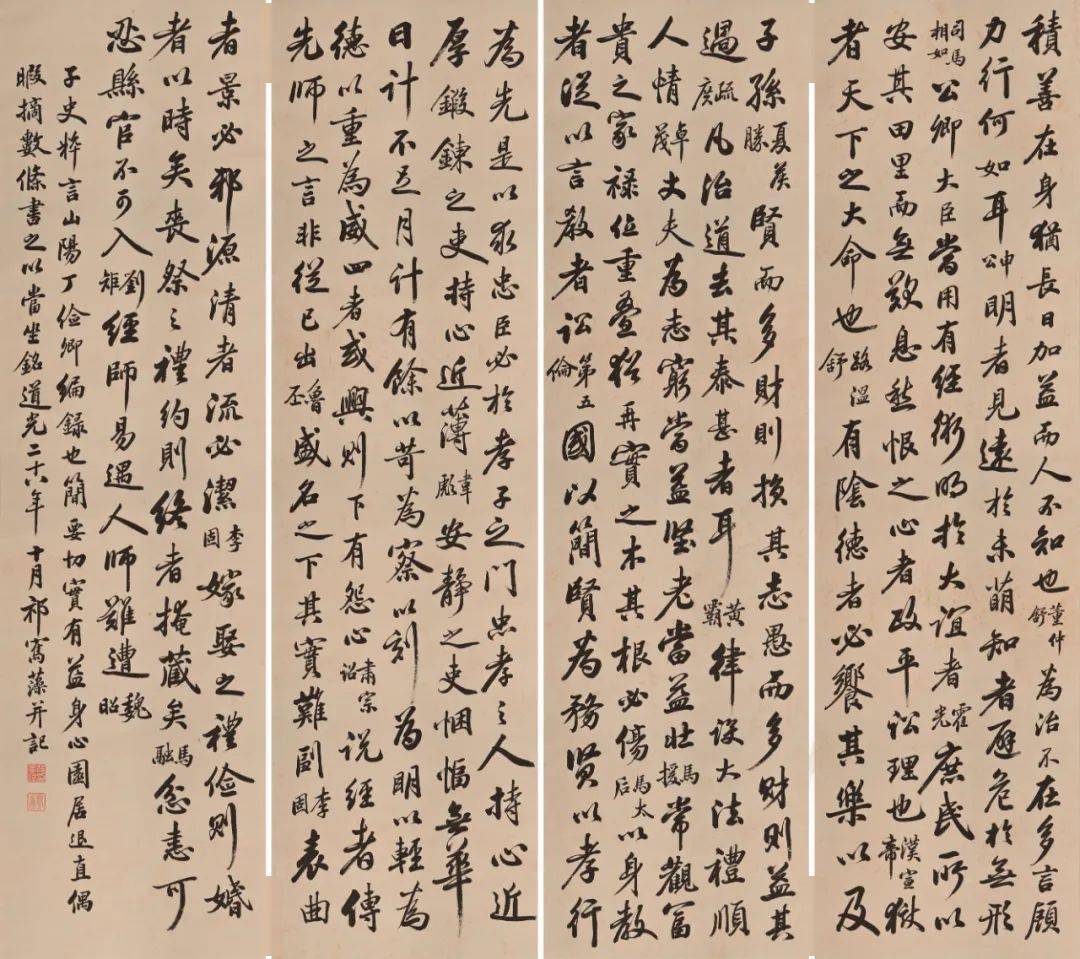 積善在身猶長日加益而人不知也董仲舒為治不在多言顧
力行何如耳申公明者見遠於未萌知者避危於無形
司馬相如公卿大臣當用有經術明於大誼者霍光庶民所以
安其田里而無歎息愁恨之心者政平訟理也漢宣帝獄
者天下之大命也路溫舒有陰德者必饗其樂以及
子孫夏侯勝賢而多財則損其志愚而多財則益其
過疏廣凡治道去其泰甚者耳黃霸律設大法禮順
人情卓茂丈夫為志窮當益堅老當益壯馬援常觀富
貴之家祿位重疊猶再實之木其根必傷馬太后以身教
者從以言教者訟第五倫國以簡賢為務賢以孝行
為先是以求忠臣必於孝子之門忠孝之人持心近
厚鍛鍊之吏持心近薄韋彪安靜之吏悃愊無華
日計不足月計有餘以苛為察以刻為明以輕為
德以重為威四者或興則下有怨心肅宗詔說經者傳
先師之言非從己出魯丕盛名之下其實難副李固表曲
者景必邪源清者流必潔李固嫁娶之禮儉則婚
者以時矣喪祭之禮約則終者掩藏矣馬融忿恚可
忍縣官不可入劉矩經師易遇人師難遭魏昭
子史粹言山陽丁儉卿編録也簡要切實有益身心園居退直偶
暇摘數條書之以當坐銘道光二十六年十月祁寯藻并記